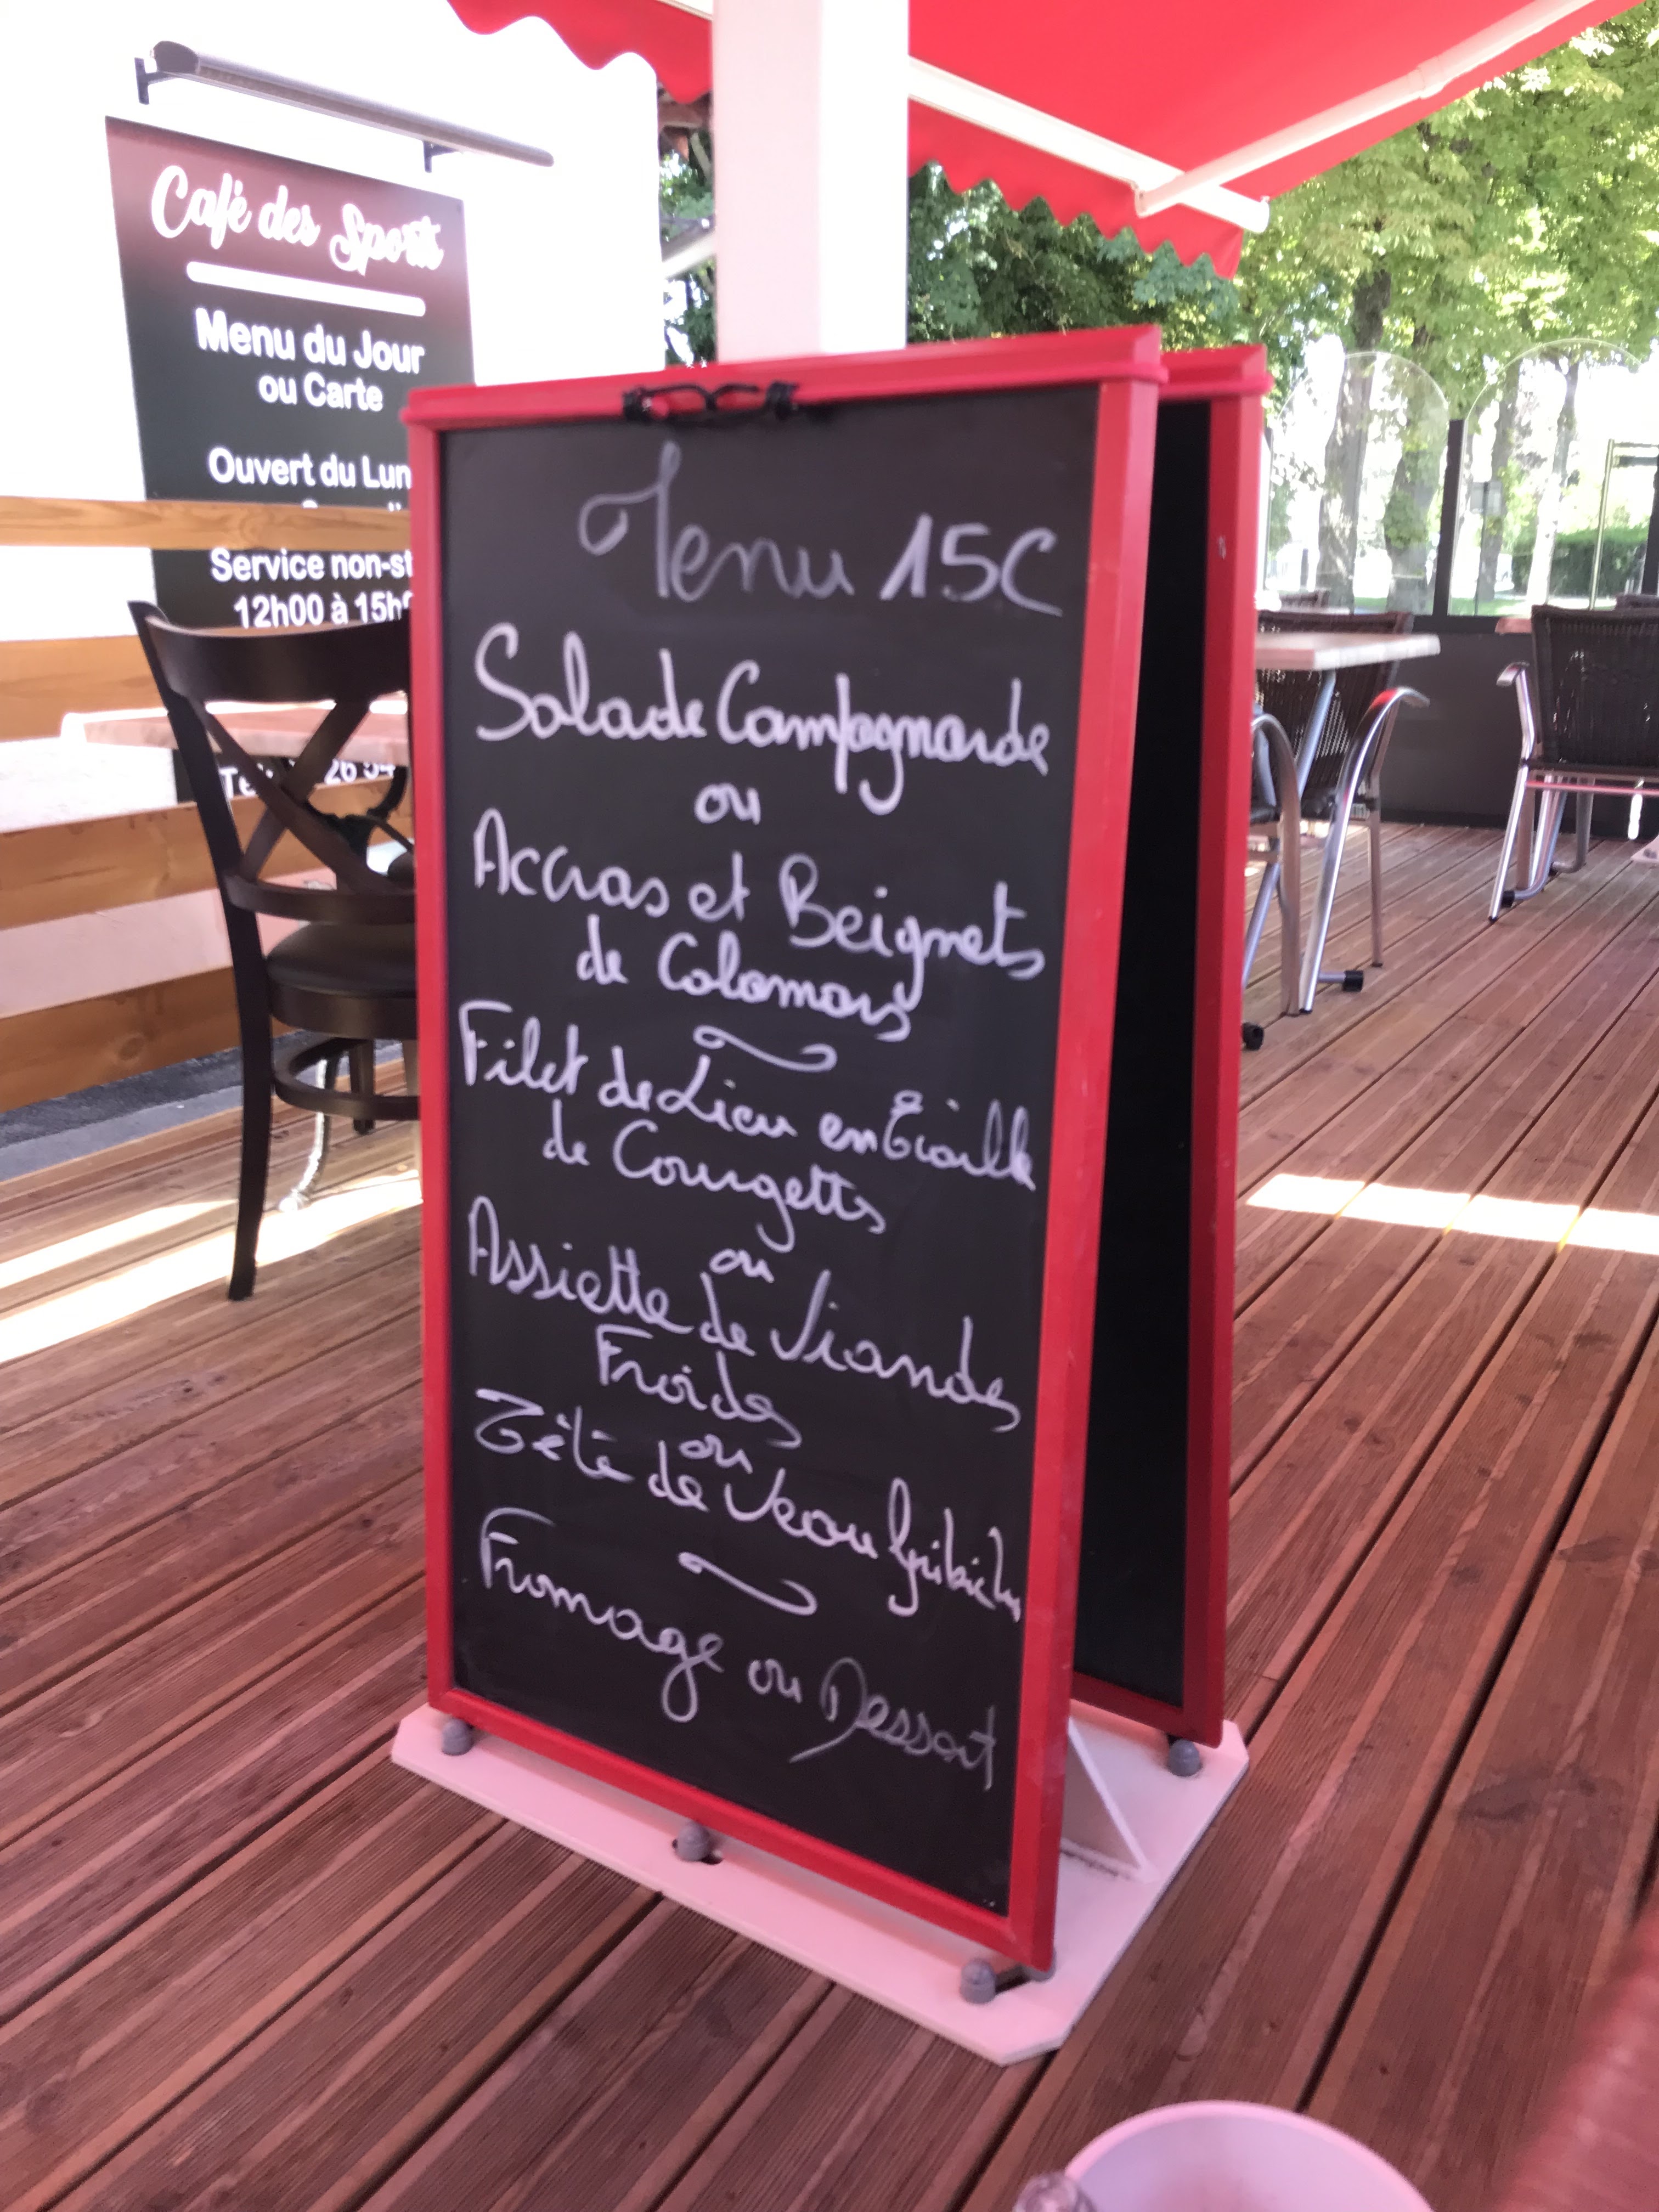 Café des Sports
Menu du Jour
ou Carte
Ouvert du Lun
Service non-st
12h00 à 15h0
26 54
Menu 15€
Salade Campagnarde
ou
Accras et Beignets
de Calamars
Filet de Lieu en Ecaille
de Courgettes
ou
Assiette de Viandes
Froides
ou
Tête de Veau Gribiche
Fromage ou Dessert